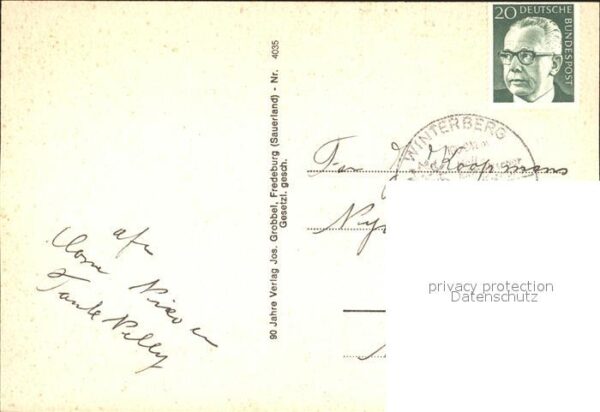 afz
Oom Nico en
Tante Nelly
90 Jahre Verlag Jos. Grobbel, Fredeburg (Sauerland) - Nr. 4035
Gesetzl. gesch.
20 DEUTSCHE
BUNDESPOST
WINTERBERG
Fam J. Koopmans
privacy protection
Datenschutz